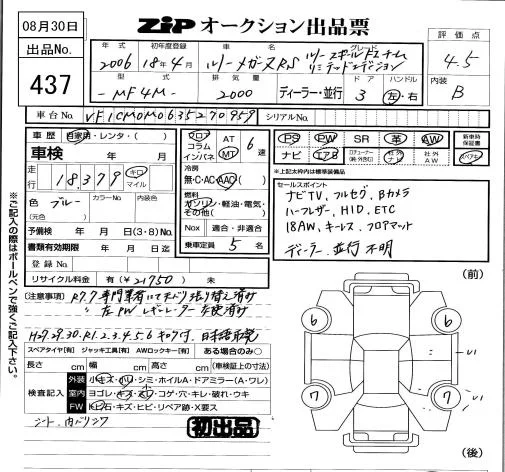 08月30日
ZIP オークション出品票
出品No.
437
年式 初年度登録 車名 グレード
2006 18年4月 ルノーメガーヌRS ルノースポールF1チーム
リミテッドエディション
型式 排気量 ドア ハンドル
-MF4M- 2000 ディーラー・並行 3 左・右
評価点
4.5
内装
B
車台No. VF1CM0M0635270959 シリアルNo.
車歴 自家用・レンタ・( )
車検 年 月
走行 18,379 キロ マイル
色 ブルー カラーNo. 内装色
(元色)
予備検 年 月 日(3・8)No.
書類有効期限 年 月 日迄
登録No.
リサイクル料金 有(¥21750) 未
フロア コラム インパネ
AT MT 6 速
冷房
無・C・AC・AAC( )
燃料
ガソリン・軽油・電気・その他( )
Nox 適合・非適合
乗車定員 5 名
PS PW SR 革 AW
ナビ エアB 社外ナビ 社外AW
新車時保証書
スペアキー
※上記太枠内は標準装備品
セールスポイント
ナビTV、フルセグ、Bカメラ
ハーフレザー、HID、ETC
18AW、キーレス、フロアマット
ディーラー、並行 不明
(注意事項) R7.7 専門業者にて天ばり張り替え済み
左PWレギュレーター交換済み
H27.29.30.R1.2.3.4.5.6 キロク有、日本語取説
スペアタイヤ【有】 ジャッキ工具【有】 AWロックキー【有】 ある場合のみ○
長さ cm 幅 cm 高さ cm (車検証上の寸法)
検査記入
外装 小キズ・ハリ・シミ・ホイルA・ドアミラー(A・ワレ)
室内 ヨゴレ・キズ・スレ・コゲ・穴・キレ・破れ・ウキ
FW 飛石・キズ・ヒビ・リペア跡・X要ス
シート、内ハリツク
初出品
(前)
6 6
7 7
(後)
※ご記入の際はボールペンで強くご記入下さい。